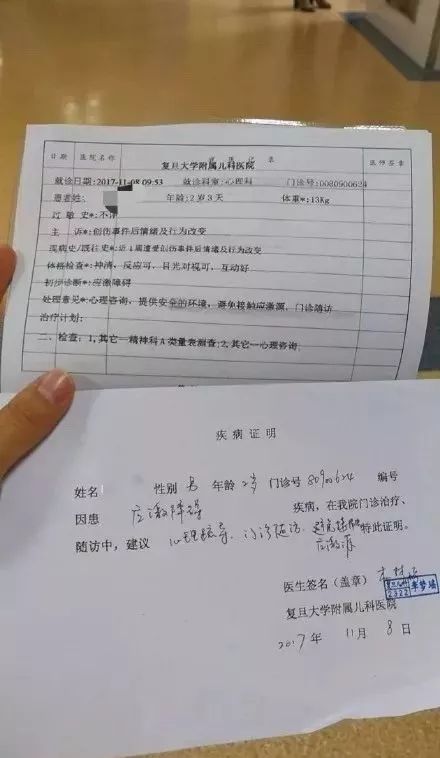 日期 医院名称 医师签章
复旦大学附属儿科医院
就诊日期:2017-11-08 09:53 就诊科室:心理科 门诊号:0080900624
患者姓名: 年龄:2岁3天 体重*:13Kg
过敏史*:不详
主 诉*:创伤事件后情绪及行为改变
现病史/既往史*:近1周遭受创伤事件后情绪及行为改变
体格检查*:神清，反应可，目光对视可，互动好
初步诊断*:应激障碍
处理意见*:心理咨询，提供安全的环境，避免接触应激源，门诊随访
治疗计划:
二、检查：1,其它--精神科A类量表测查;2,其它--心理咨询
疾病证明
姓名 性别 男 年龄 2岁 门诊号 80900624 编号
因患 应激障碍 疾病，在我院门诊治疗、
随访中，建议 心理疏导、门诊随访、避免接触应激源 特此证明。
医生签名（盖章）
复旦大学附属儿科医院
2017年 11月 8日